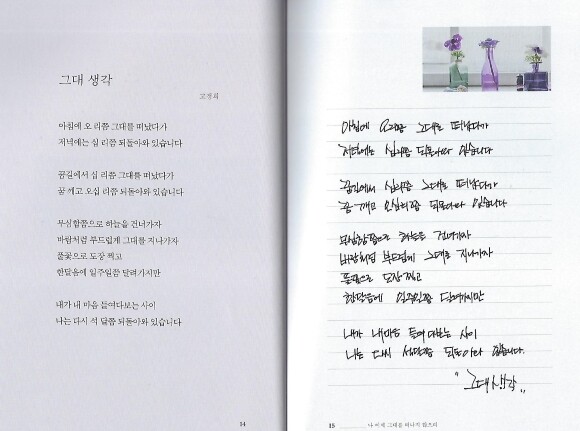 그대 생각
고정희
아침에 오 리쯤 그대를 떠났다가
저녁에는 십 리쯤 되돌아와 있습니다
꿈길에서 십 리쯤 그대를 떠났다가
꿈 깨고 오십 리쯤 되돌아와 있습니다
무심함쯤으로 하늘을 건너가자
바람처럼 부드럽게 그대를 지나가자
풀꽃으로 도장 찍고
한달음에 일주일쯤 달려가지만
내가 내 마음 들여다보는 사이
나는 다시 석 달쯤 되돌아와 있습니다
14
아침에 오리쯤 그대를 떠났다가
저녁에는 십리쯤 되돌아와 있습니다
꿈길에서 십리쯤 그대를 떠났다가
꿈 깨고 오십리쯤 되돌아와 있습니다
무심함쯤으로 하늘을 건너가자
바람처럼 부드럽게 그대를 지나가자
풀꽃으로 도장 찍고
한달음에 일주일쯤 달려가지만
내가 내마음 들여다보는 사이
나는 다시 석달쯤 되돌아와 있습니다.
"그대 생각"
15 나 이제 그대를 떠나지 않으리